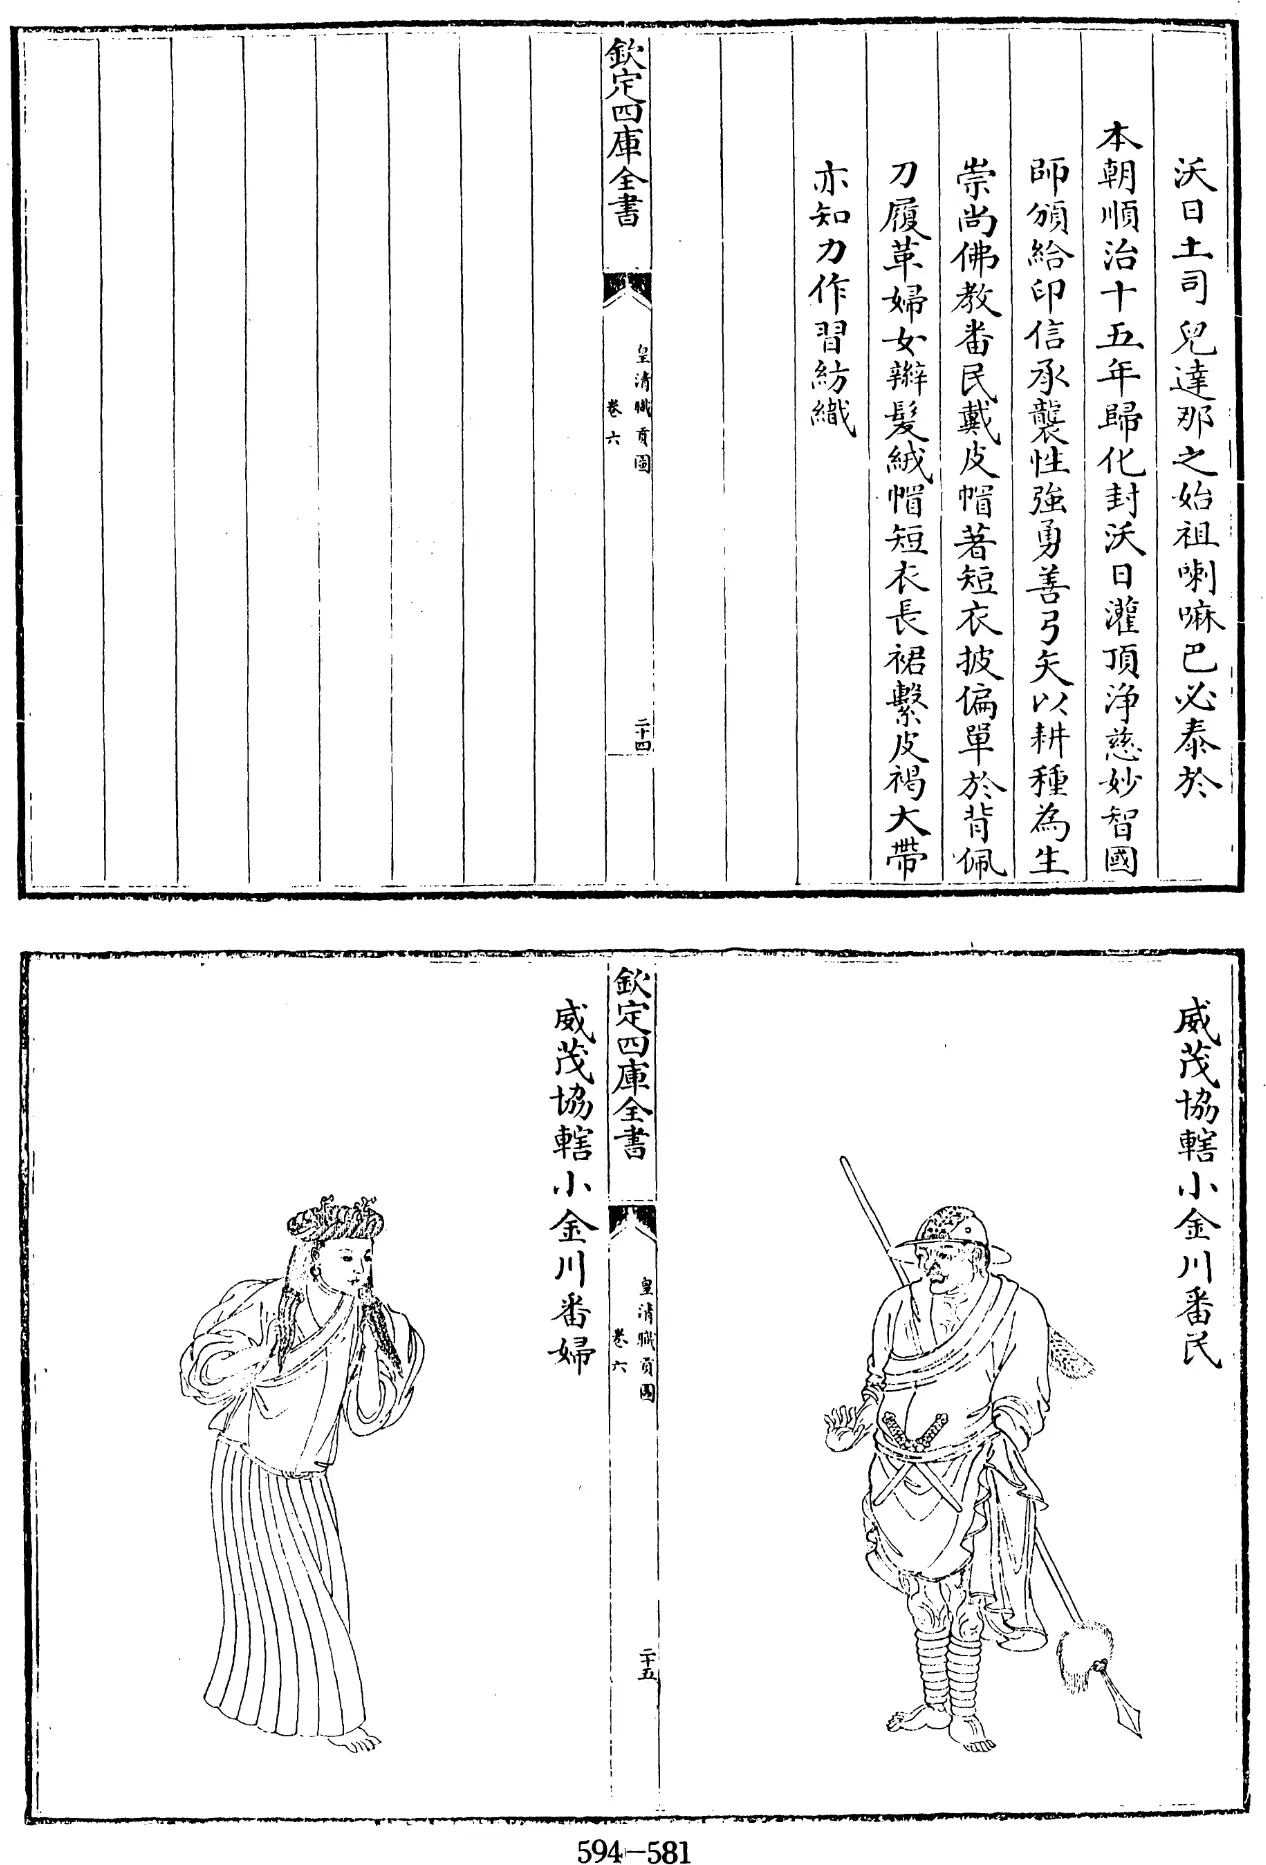 沃日土司兒達那之始祖喇嘛巴必泰於
本朝順治十五年歸化封沃日灌頂淨慈妙智國
師頒給印信承襲性強勇善弓矢以耕種為生
崇尚佛教番民戴皮帽著短衣披偏單於背佩
刀履革婦女辮髮絨帽短衣長裙繫皮褐大帶
亦知力作習紡織
欽定四庫全書
皇清職貢圖
卷六
二十四
威茂協轄小金川番民
欽定四庫全書
皇清職貢圖
卷六
二十五
威茂協轄小金川番婦
594-581